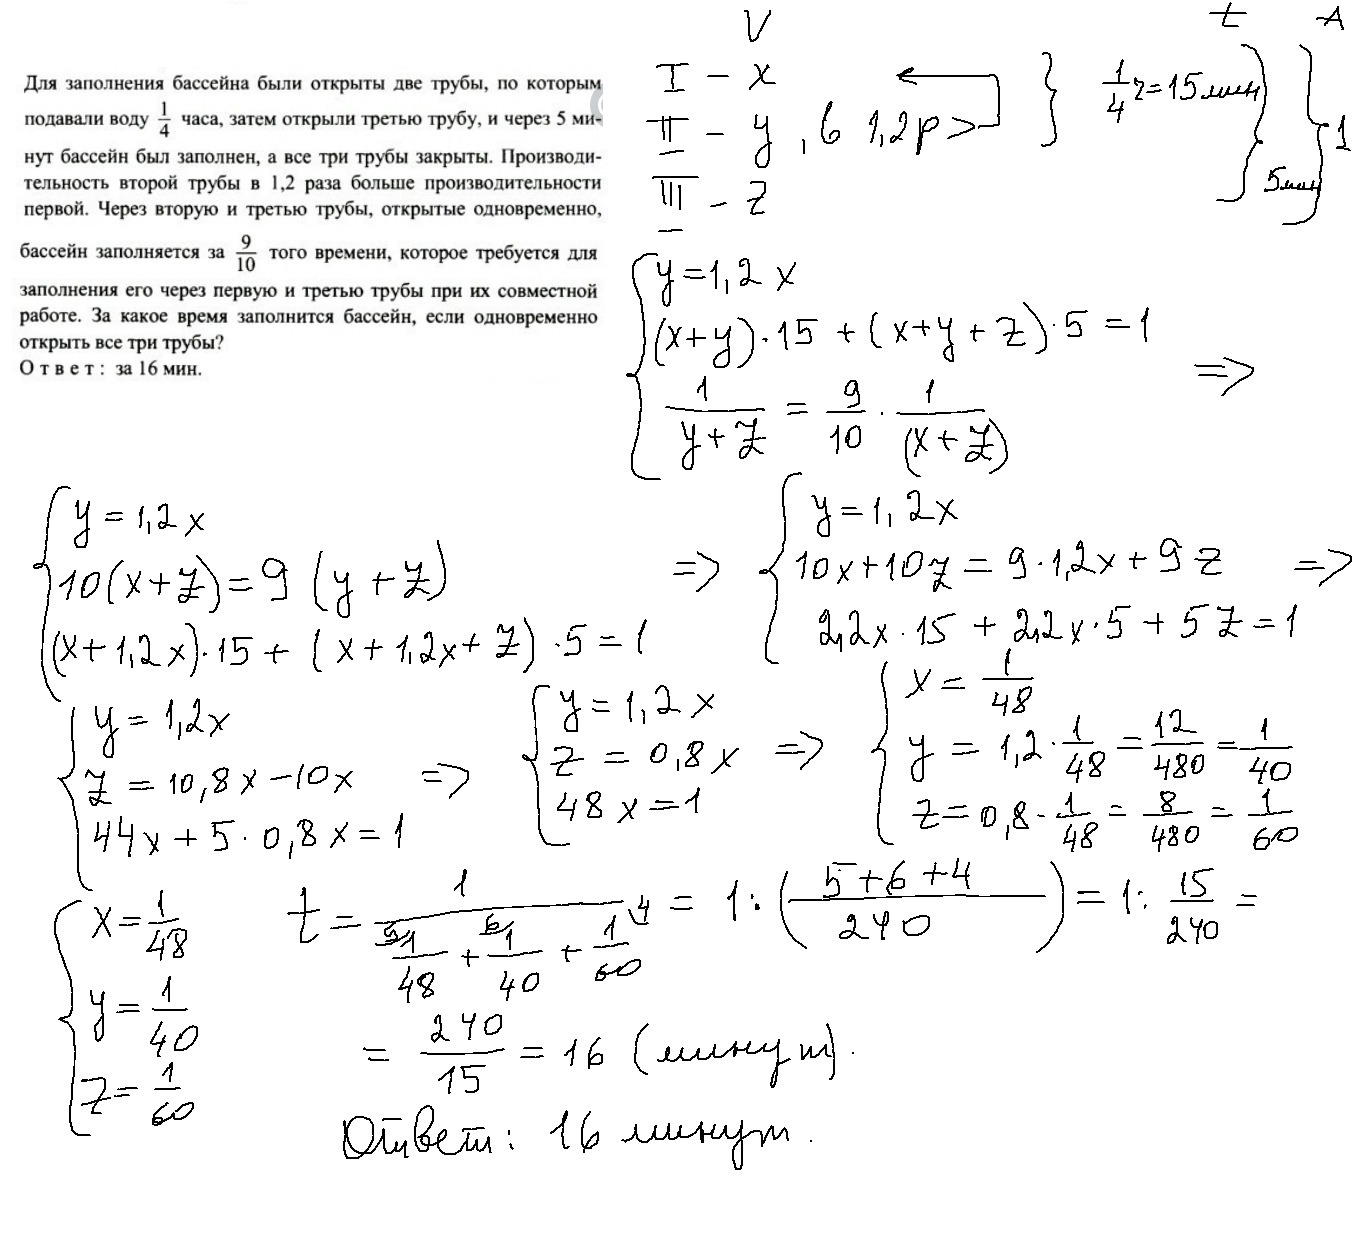 Для заполнения бассейна были открыты две трубы, по которым
подавали воду 1/4 часа, затем открыли третью трубу, и через 5 ми-
нут бассейн был заполнен, а все три трубы закрыты. Производи-
тельность второй трубы в 1,2 раза больше производительности
первой. Через вторую и третью трубы, открытые одновременно,
бассейн заполняется за 9/10 того времени, которое требуется для
заполнения его через первую и третью трубы при их совместной
работе. За какое время заполнится бассейн, если одновременно
открыть все три трубы?
Ответ: за 16 мин.
V t A
I - x
II - y, в 1,2 р >
III - z
1/4 ч = 15 мин
5 мин
1
y = 1,2 x
(x+y)·15 + (x+y+z)·5 = 1 =>
1/(y+z) = 9/10 · 1/(x+z)
y = 1,2x
10(x+z) = 9(y+z) =>
(x+1,2x)·15 + (x+1,2x+z)·5 = 1
y = 1,2x
10x+10z = 9·1,2x + 9z =>
2,2x·15 + 2,2x·5 + 5z = 1
y = 1,2x
z = 10,8x - 10x =>
44x + 5·0,8x = 1
y = 1,2x
z = 0,8x =>
48x = 1
x = 1/48
y = 1,2 · 1/48 = 12/480 = 1/40
z = 0,8 · 1/48 = 8/480 = 1/60
x = 1/48
y = 1/40
z = 1/60
t = 1/(1/48 + 1/40 + 1/60) = 1 : ((5+6+4)/240) = 1 : 15/240 =
5 6 4
= 240/15 = 16 (минут).
Ответ: 16 минут.